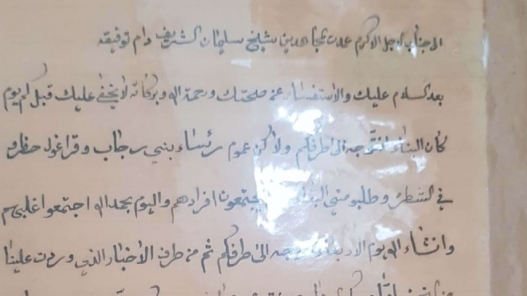 الاجناب الاجل الاكرم عمدت المجاهدين الشيخ سليمان الشريف دام توفيقه
بعد السلام عليك والاستفسار عن صحتك ورحمة الله وبركاته لا يخفى عليك قبل اليوم
كان البناء نتوجه الى طرفكم ولاكن عموم رئساء بني رجاب وقراغول حظرو
في الشطره وطلبو مني البقاء يجتمعون افرادهم واليوم بحمد الله اجتمعوا اغلبهم
وانشاء الله يوم الاربعاء نتوجه الى طرفكم ثم من طرف الاخبار الذي وردت علينا